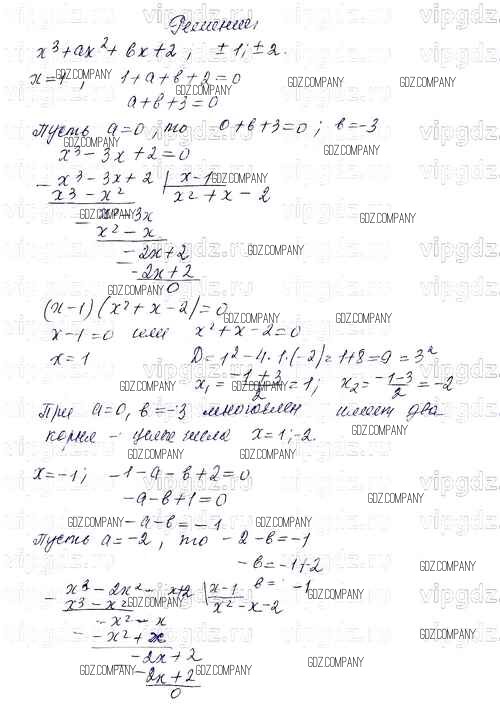 Решение:
x³+ax²+bx+2, ±1; ±2.
x=1, 1+a+b+2=0
a+b+3=0
Пусть a=0, то 0+b+3=0; b=-3
x³-3x+2=0
- x³-3x+2 | x-1
x³-x² x²+x-2
- x²-3x
x²-x
- -2x+2
-2x+2
0
(x-1)(x²+x-2)=0
x-1=0 или x²+x-2=0
x=1 D=1²-4·1·(-2)=1+8=9=3²
x₁=(-1+3)/2=1; x₂=(-1-3)/2=-2
При a=0, b=-3 многочлен имеет два
корня - целые числа x=1;-2.
x=-1; -1-a-b+2=0
-a-b+1=0
-a-b=-1
Пусть a=-2, то -2-b=-1
-b=-1+2
b=-1
- x³-2x²-x+2 | x-1
x³-x² x²-x-2
- -x²-x
-x²+x
- -2x+2
-2x+2
0
vipgdz.ru
GDZ.COMPANY